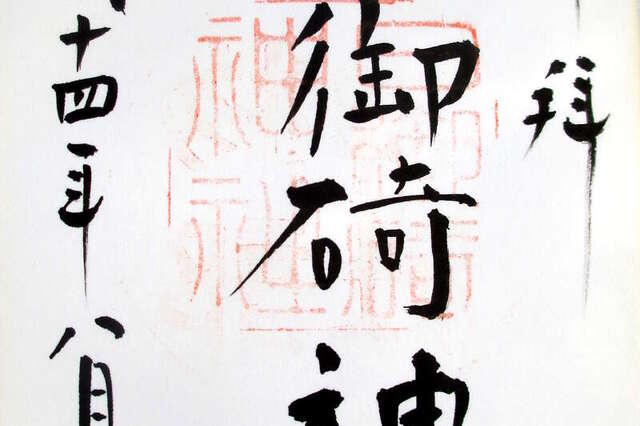 拝
御碕神
十四年八月